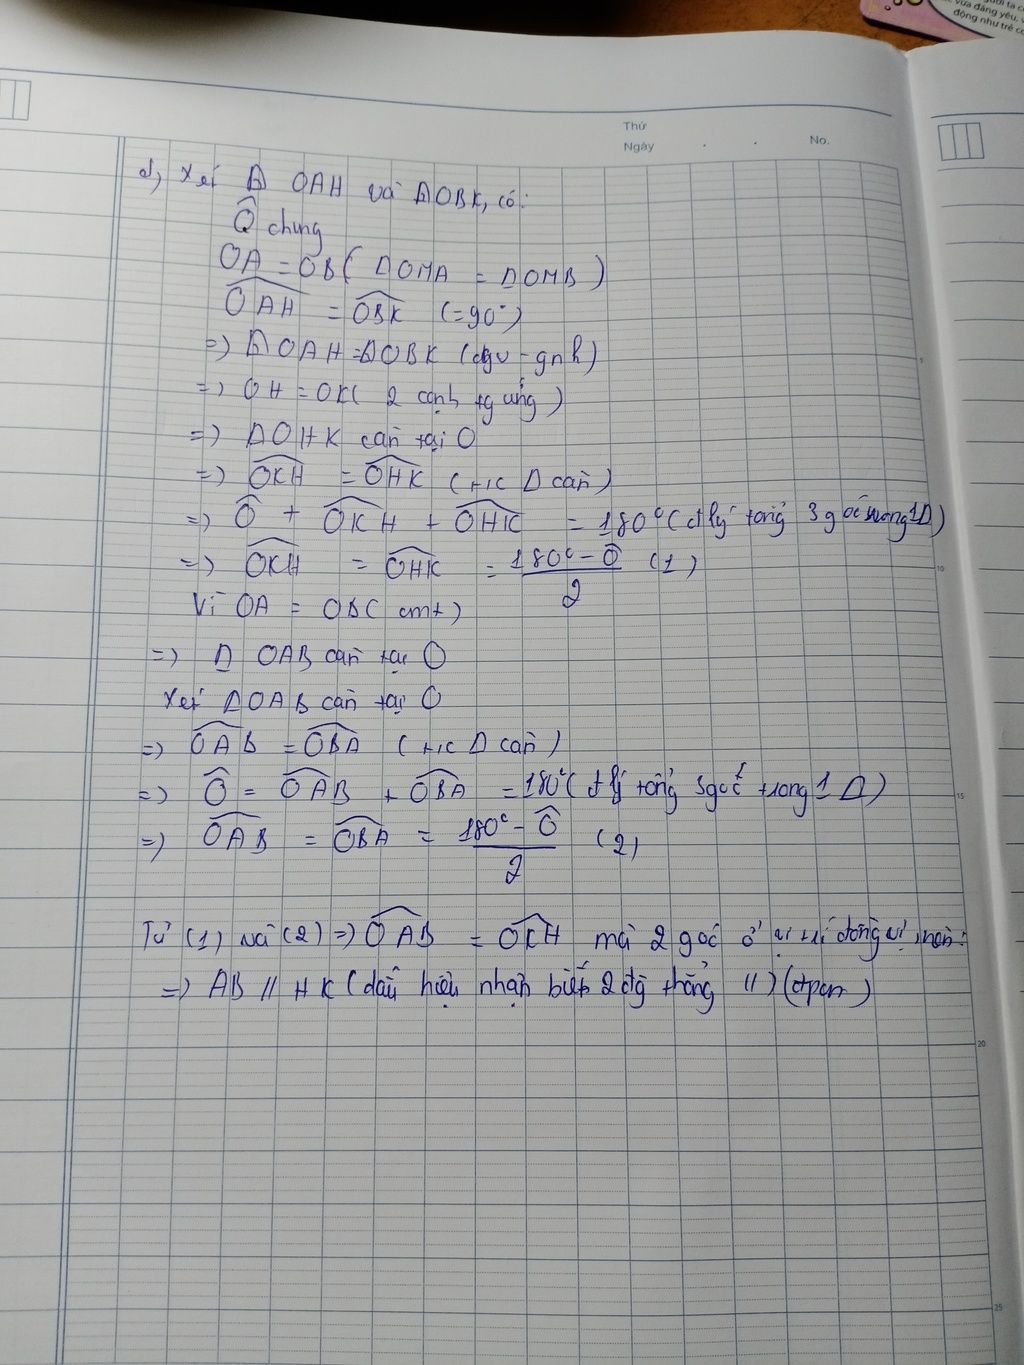 người ta c
vừa đáng yêu,
động như trẻ co
Thứ
Ngày . . No.
d, Xét Δ OAH và ΔOBK, có:
Ô chung
OA = OB ( ΔOMA = ΔOMB )
OAH = OBK (=90°)
=> ΔOAH = ΔOBK (cgv - gnk)
=> OH = OK( 2 cạnh tg ứng )
=> ΔOHK cân tại O
=> OKH = OHK ( t/c Δ cân )
=> Ô + OKH + OHK = 180° ( đ lý tổng 3 góc trong 1Δ )
=> OKH = OHK = (180° - Ô)/2 (1)
Vì OA = OB( cmt )
=> Δ OAB cân tại O
Xét ΔOAB cân tại O
=> OAB = OBA ( t/c Δ cân )
=> Ô = OAB + OBA = 180° ( đ lý tổng 3 góc trong 1 Δ )
=> OAB = OBA = (180° - Ô)/2 (2)
Từ (1) và (2) => OAB = OKH mà 2 góc ở vị trí đồng vị nên:
=> AB // HK ( dấu hiệu nhận biết 2 đg thẳng // ) (đpcm)
5
10
15
20
25